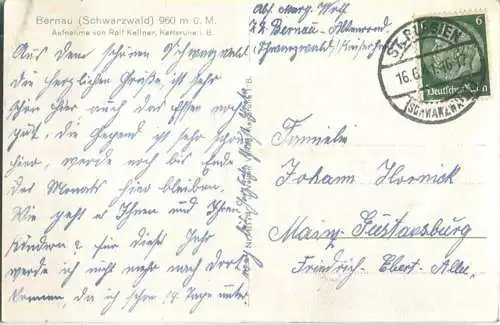 Bernau (Schwarzwald) 950 m ü. M.
Aufnahme von Rolf Kellner, Karlsruhe i. B.
Aus dem schönen Schwarzwald
die herzlichen Grüße, ist sehr
schön hier auch das Essen
gut, die Gegend ist sehr schön
hier, werde noch bis Ende
des Monats hier bleiben.
Wie geht es Ihnen und Ihren
Kindern? für dieses Jahr
werde ich nicht mehr nach dort
kommen, da ich schon 14 Tage unter
Abs. Marg. Wolf
z. Z. Bernau-
Schwarzwald
ST. BLASIEN
16.6.
(SCHWARZW.)
6
Deutsches Reich
Familie
Johann Hornick
Mainz Gustavsburg
Friedrich-Ebert-Allee